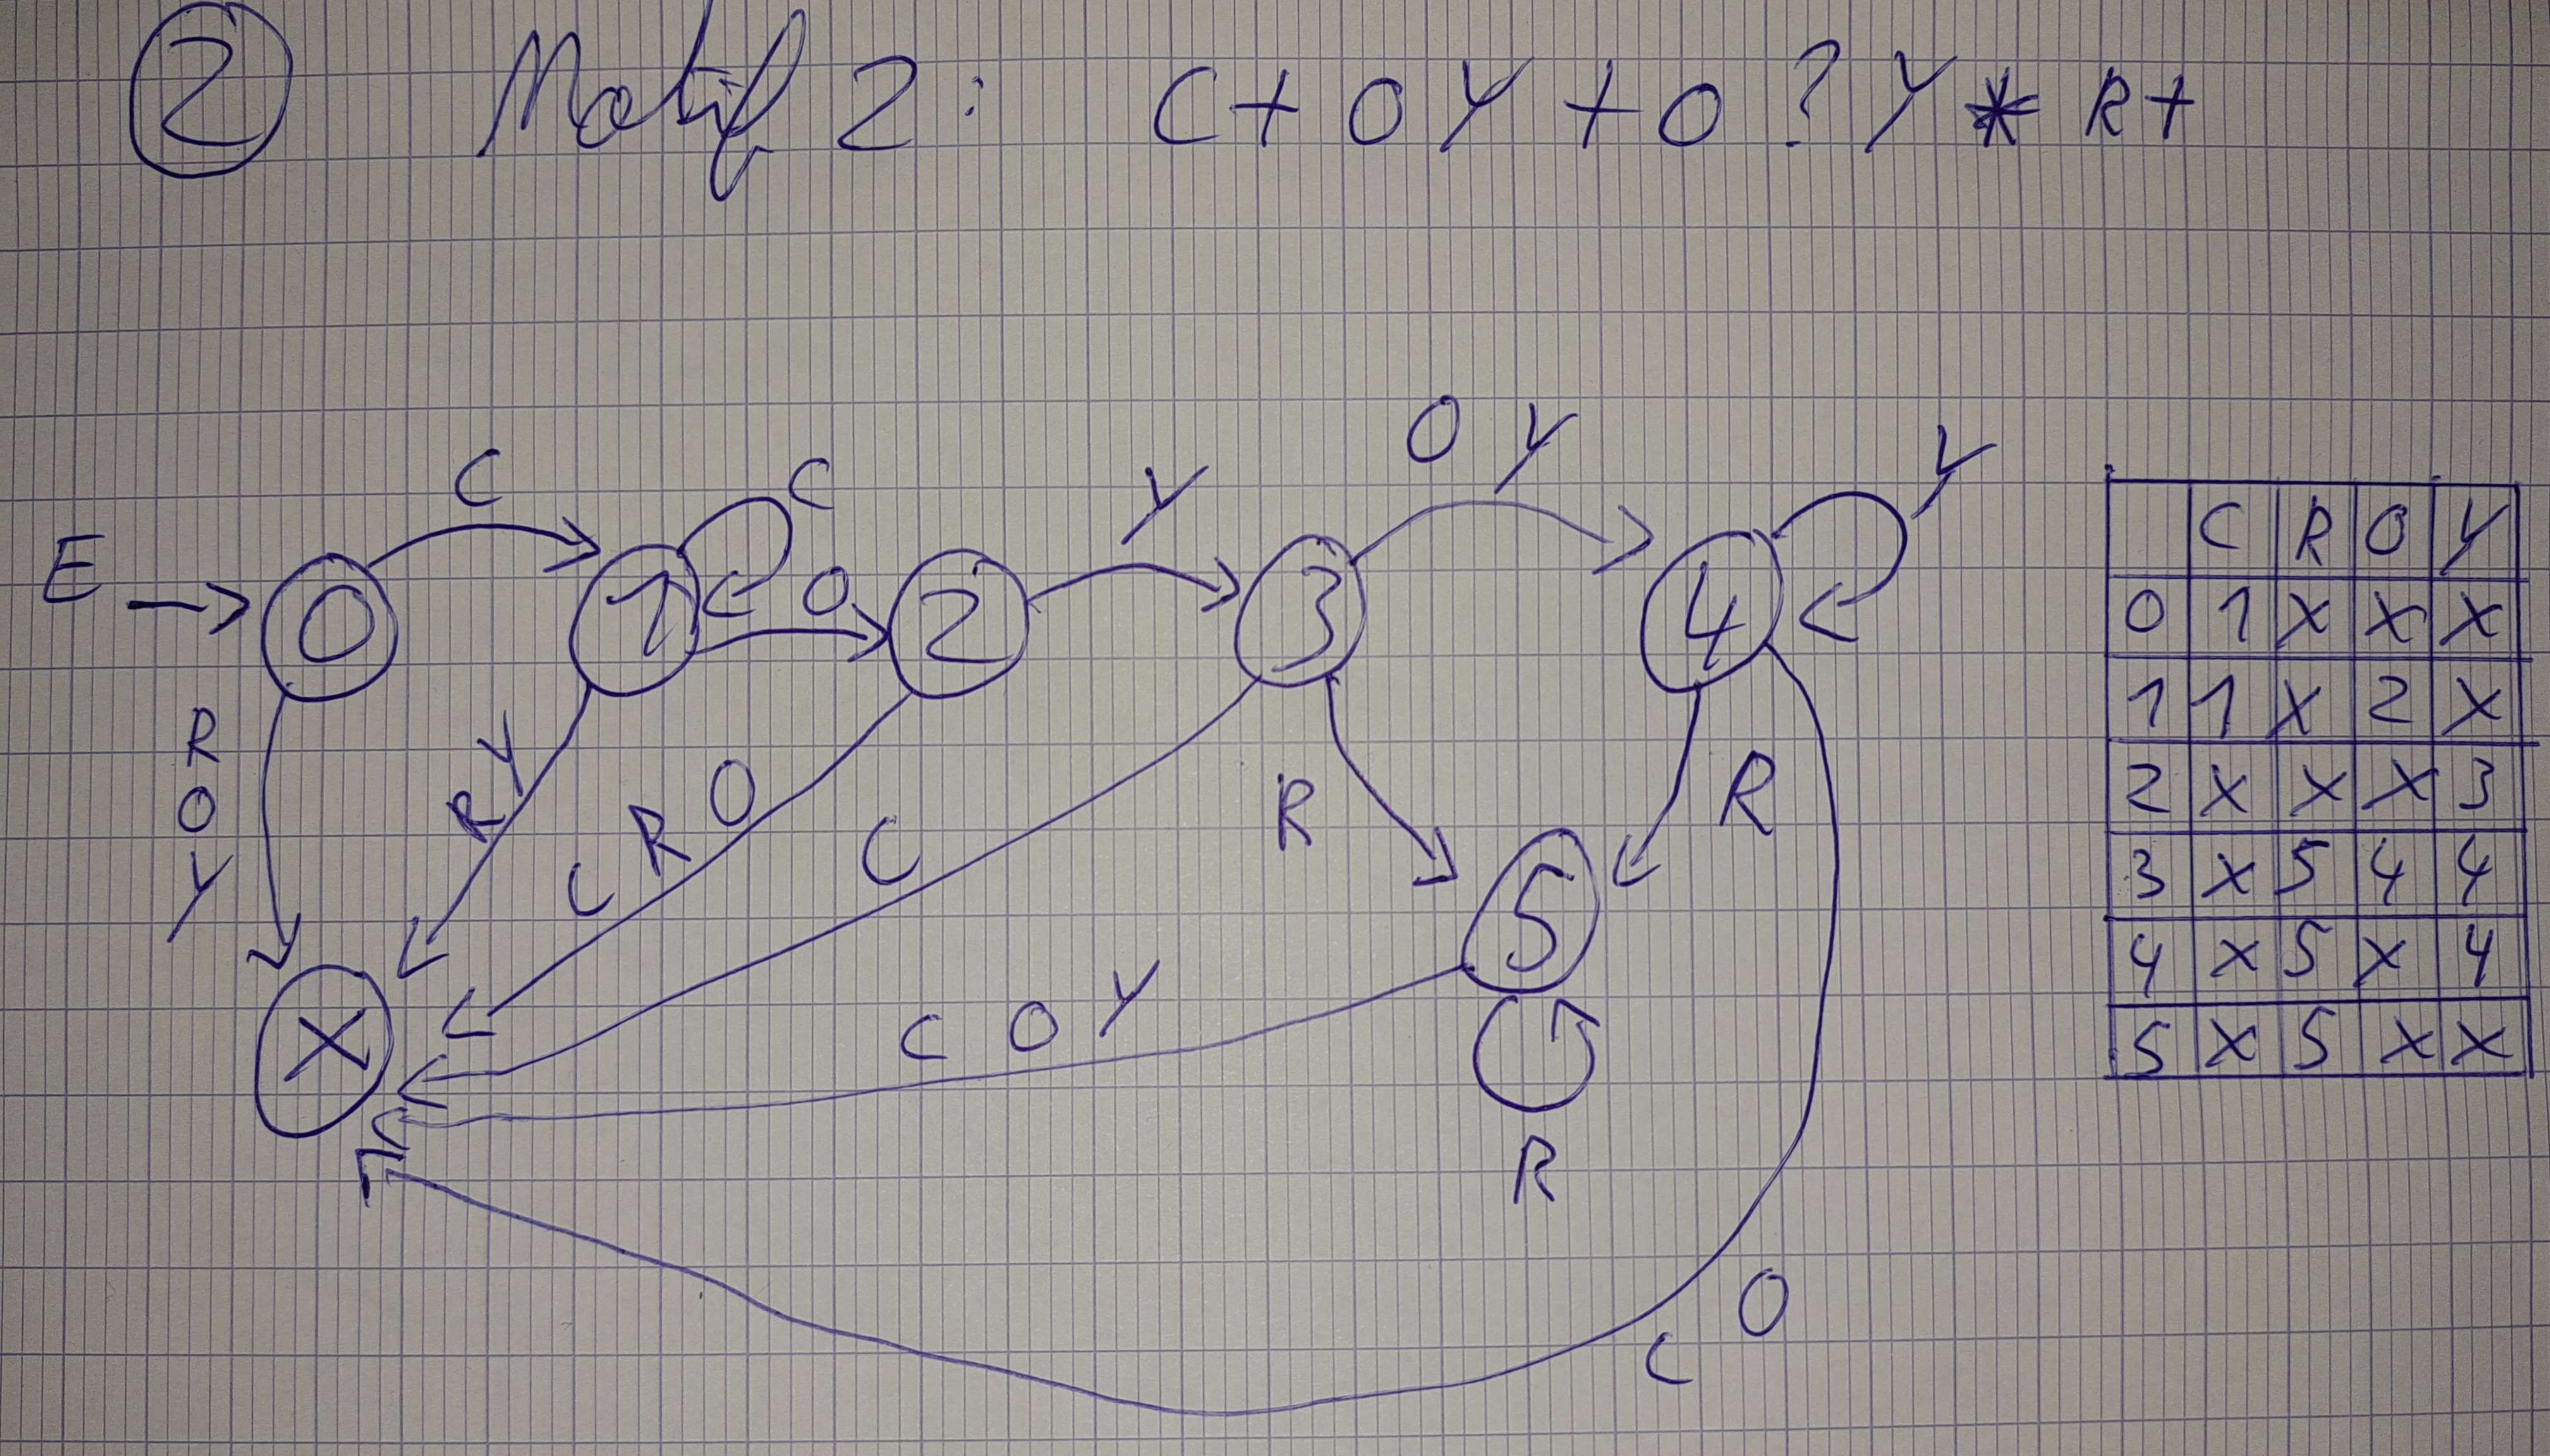 2 Motif 2: C+OY+O?Y*R+
C C O Y O Y Y
E 0 1 O 2 3 4
R O Y R Y C R O C R R
5
X C O Y
R
C O
C R O Y
0 1 X X X
1 1 X 2 X
2 X X X 3
3 X 5 4 4
4 X 5 X 4
5 X 5 X X